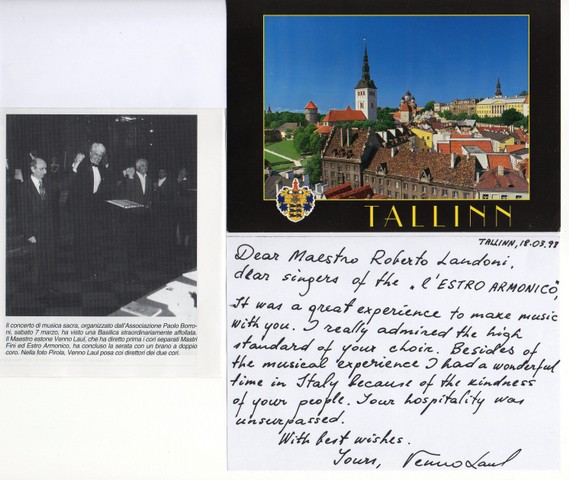 Il concerto di musica sacra, organizzato dall'Associazione Paolo Borro-
ni, sabato 7 marzo, ha visto una Basilica straordinariamente affollata.
Il Maestro estone Venno Laul, che ha diretto prima i cori separati Mastri
Fini ed Estro Armonico, ha concluso la serata con un brano a doppio
coro. Nella foto Pirola, Venno Laul posa coi direttori dei due cori.
TALLINN
TALLINN, 18.03.98
Dear Maestro Roberto Landoni,
dear singers of the „l'ESTRO ARMONICO",
It was a great experience to make music
with you. I really admired the high
standard of your choir. Besides of
the musical experience I had a wonderful
time in Italy because of the kindness
of your people. Your hospitality was
unsurpassed.
With best wishes.
Yours, Venno Laul